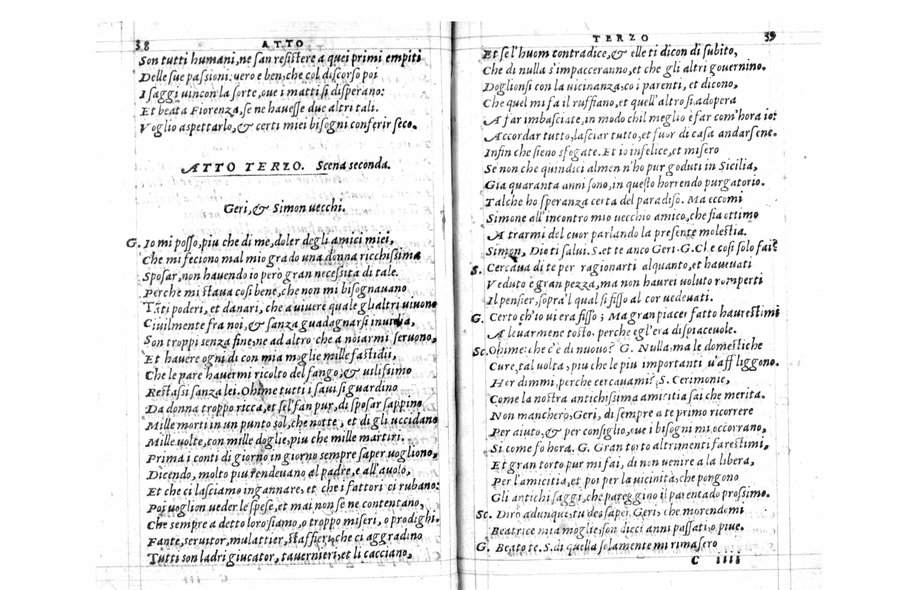 38 ATTO
Son tutti humani, ne san resistere a quei primi empiti
Delle sue passioni: uero e ben, che col discorso poi
I saggi uincon la sorte, oue i matti si disperano:
Et beata Fiorenza, se ne hauesse due altri tali.
Voglio aspettarlo, & certi miei bisogni conferir seco.
ATTO TERZO. Scena seconda.
Geri, & Simon uecchi.
G. Io mi posso, piu che di me, doler degli amici miei,
Che mi feciono mal mio grado una donna ricchissima
Sposar, non hauendo io però gran necessita di tale.
Perche mi staua cosi bene, che non mi bisognauano
Tati poderi, et danari, che a uiuere quale gli altri uiuono
Ciuilmente fra noi, & sanza guadagnarsi inuidia,
Son troppi senza fine, ne ad altro che a noiarmi seruono,
Et hauere ogni dì con mia moglie mille fastidii,
Che le pare hauermi ricolto del fango, & uilissimo
Restassi sanza lei. Ohime tutti i saui si guardino
Da donna troppo ricca, et se'l fan pur, di sposar sappino
Mille morti in un punto sol, che notte, et dì gli uccidano
Mille uolte, con mille doglie, piu che mille martiri.
Prima i conti di giorno in giorno sempre saper uogliono,
Dicendo, molto piu rendeuano al padre, e all'auolo,
Et che ci lasciamo ingannare, et che i fattori ci rubano:
Poi uoglion ueder le spese, et mai non se ne contentano,
Che sempre a detto loro siamo, o troppo miseri, o prodighi.
Fante, seruitor, mulattier, staffier, che ci aggradino
Tutti son ladri giucator, tauernieri, et li cacciano,
TERZO 39
Et se l'huom contradice, & elle ti dicon di subito,
Che di nulla s'impacceranno, et che gli altri gouernino.
Doglionsi con la uicinanza, co i parenti, et dicono,
Che quel mi fa il ruffiano, et quell'altro si adopera
A far imbasciate, in modo ch'il meglio è far com'hora io:
Accordar tutto, lasciar tutto, et fuor di casa andarsene.
Infin che sieno sfogate. Et io infelice, et misero
Se non che quindici almen n'ho pur goduti in Sicilia,
Gia quaranta anni sono, in questo horrendo purgatorio.
Talche ho speranza certa del paradiso. Ma eccomi
Simone all'incontro mio uecchio amico, che fia ottimo
A trarmi del cuor parlando la presente molestia.
Simon, Dio ti salui. S. et te anco Geri. G. Ch'e cosi solo fai?
S. Cercaua di te per ragionarti alquanto, et haueuati
Veduto è gran pezza, ma non haurei uoluto romperti
Il pensier, sopra'l qual si fisso al cor uedeuati.
G. Certo ch'io ui era fisso; Ma gran piacer fatto hauresti mi
A leuarmene tosto, perche egl'era dispiaceuole.
Sc. Ohime: che c'è di nuouo? G. Nulla, ma le domestiche
Cure, tal uolta, piu che le piu importanti u'affliggono.
Hor dimmi, perche cercauami? S. Cerimonie,
Come la nostra antichissima amicitia sai che merita.
Non manchero, Geri, di sempre a te primo ricorrere
Per aiuto, & per consiglio, oue i bisogni mi occorrano,
Si come fo hora. G. Gran torto altrimenti farestimi,
Et gran torto pur mi fai, di non uenire a la libera,
Per l'amicitia, et poi per la uicinità, che pongono
Gli antichi saggi, che pareggino il parentado prossimo.
Sc. Dirò adunque, tu dei saper Geri, che morendomi
Beatrice mia moglie, son dieci anni passati, o piue.
G. Beato te. S. di quella solamente mi rimasero
C IIII